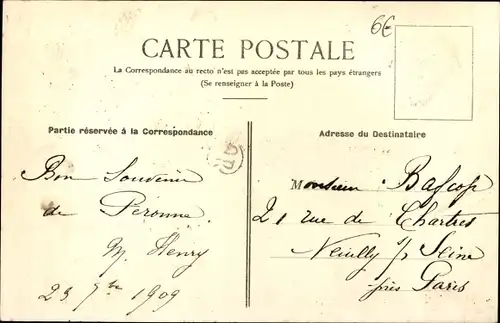 6€
CARTE POSTALE
La Correspondance au recto n'est pas acceptée par tous les pays étrangers
(Se renseigner à la Poste)
Partie réservée à la Correspondance
Bon Souvenir
de Peronne
M. Henry
23 7bre 1909
Adresse du Destinataire
Monsieur
21 rue de Chartres
Neuilly s/ Seine
près Paris